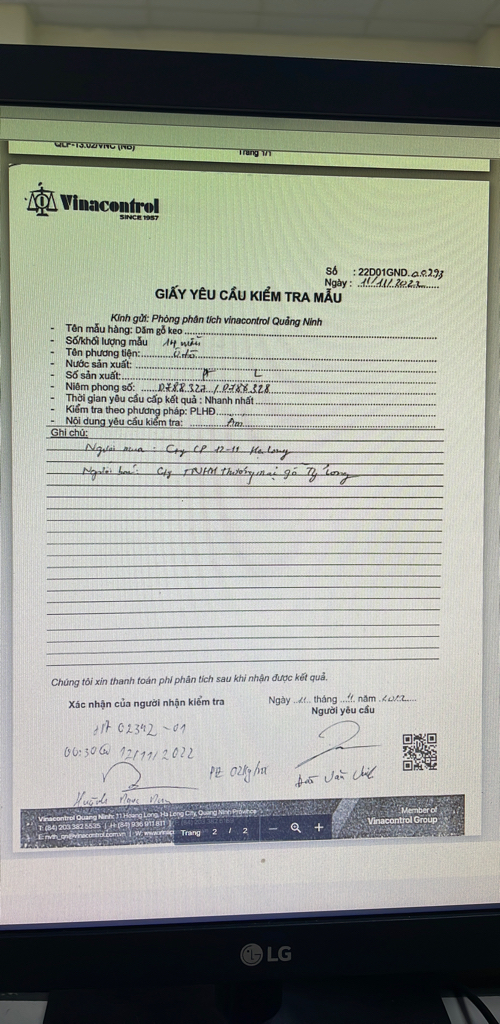 QLP-13.02/VNC (NB)
Trang 1/1
Vinacontrol
SINCE 1957
Số : 22D01GND.
Ngày : 11/11/2022
GIẤY YÊU CẦU KIỂM TRA MẪU
Kính gửi: Phòng phân tích vinacontrol Quảng Ninh
- Tên mẫu hàng: Dăm gỗ keo
- Số/khối lượng mẫu 14 mẫu
- Tên phương tiện: Ô tô
- Nước sản xuất:
- Số sản xuất:
- Niêm phong số: 0788327 / 0788328
- Thời gian yêu cầu cấp kết quả : Nhanh nhất
- Kiểm tra theo phương pháp: PLHĐ
- Nội dung yêu cầu kiểm tra: Ẩm
Ghi chú:
Người mua : Cty CP 12-11 Hạ Long
Người bán: Cty TNHH Thương mại gỗ Long
Chúng tôi xin thanh toán phí phân tích sau khi nhận được kết quả.
Xác nhận của người nhận kiểm tra
Ngày 11 tháng 11 năm 2022
Người yêu cầu
02342-01
00:30 12/11/2022
Huỳnh Ngọc
Văn
Vinacontrol Quảng Ninh: 11 Hoàng Long, Ha Long City, Quang Ninh Province
T: (84) 203 382 5535 | H: (84) 936 911 811 |
E: nvth_qn@vinacontrol.com.vn | W: www.vinac
Trang 2 / 2 − +
Member of
Vinacontrol Group
LG